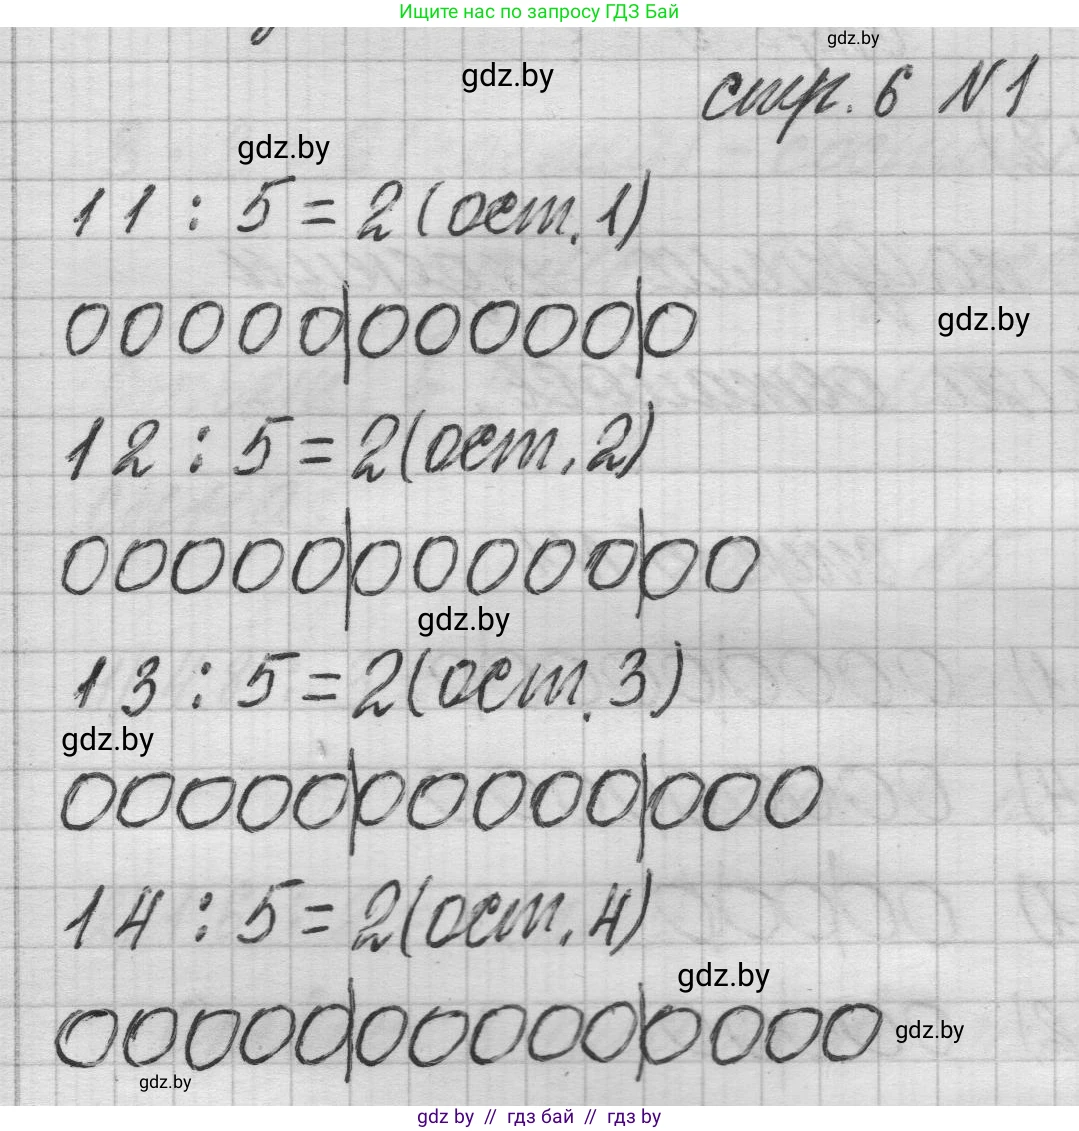 Ищите нас по запросу ГДЗ Бай
gdz.by
gdz.by
стр. 6 №1
gdz.by
11 : 5 = 2 (ост. 1)
00000|00000|0
gdz.by
12 : 5 = 2 (ост. 2)
00000|00000|00
gdz.by
13 : 5 = 2 (ост. 3)
gdz.by
00000|00000|000
14 : 5 = 2 (ост. 4)
gdz.by
00000|00000|0000
gdz.by
gdz.by
gdz by // гдз бай // gdz by